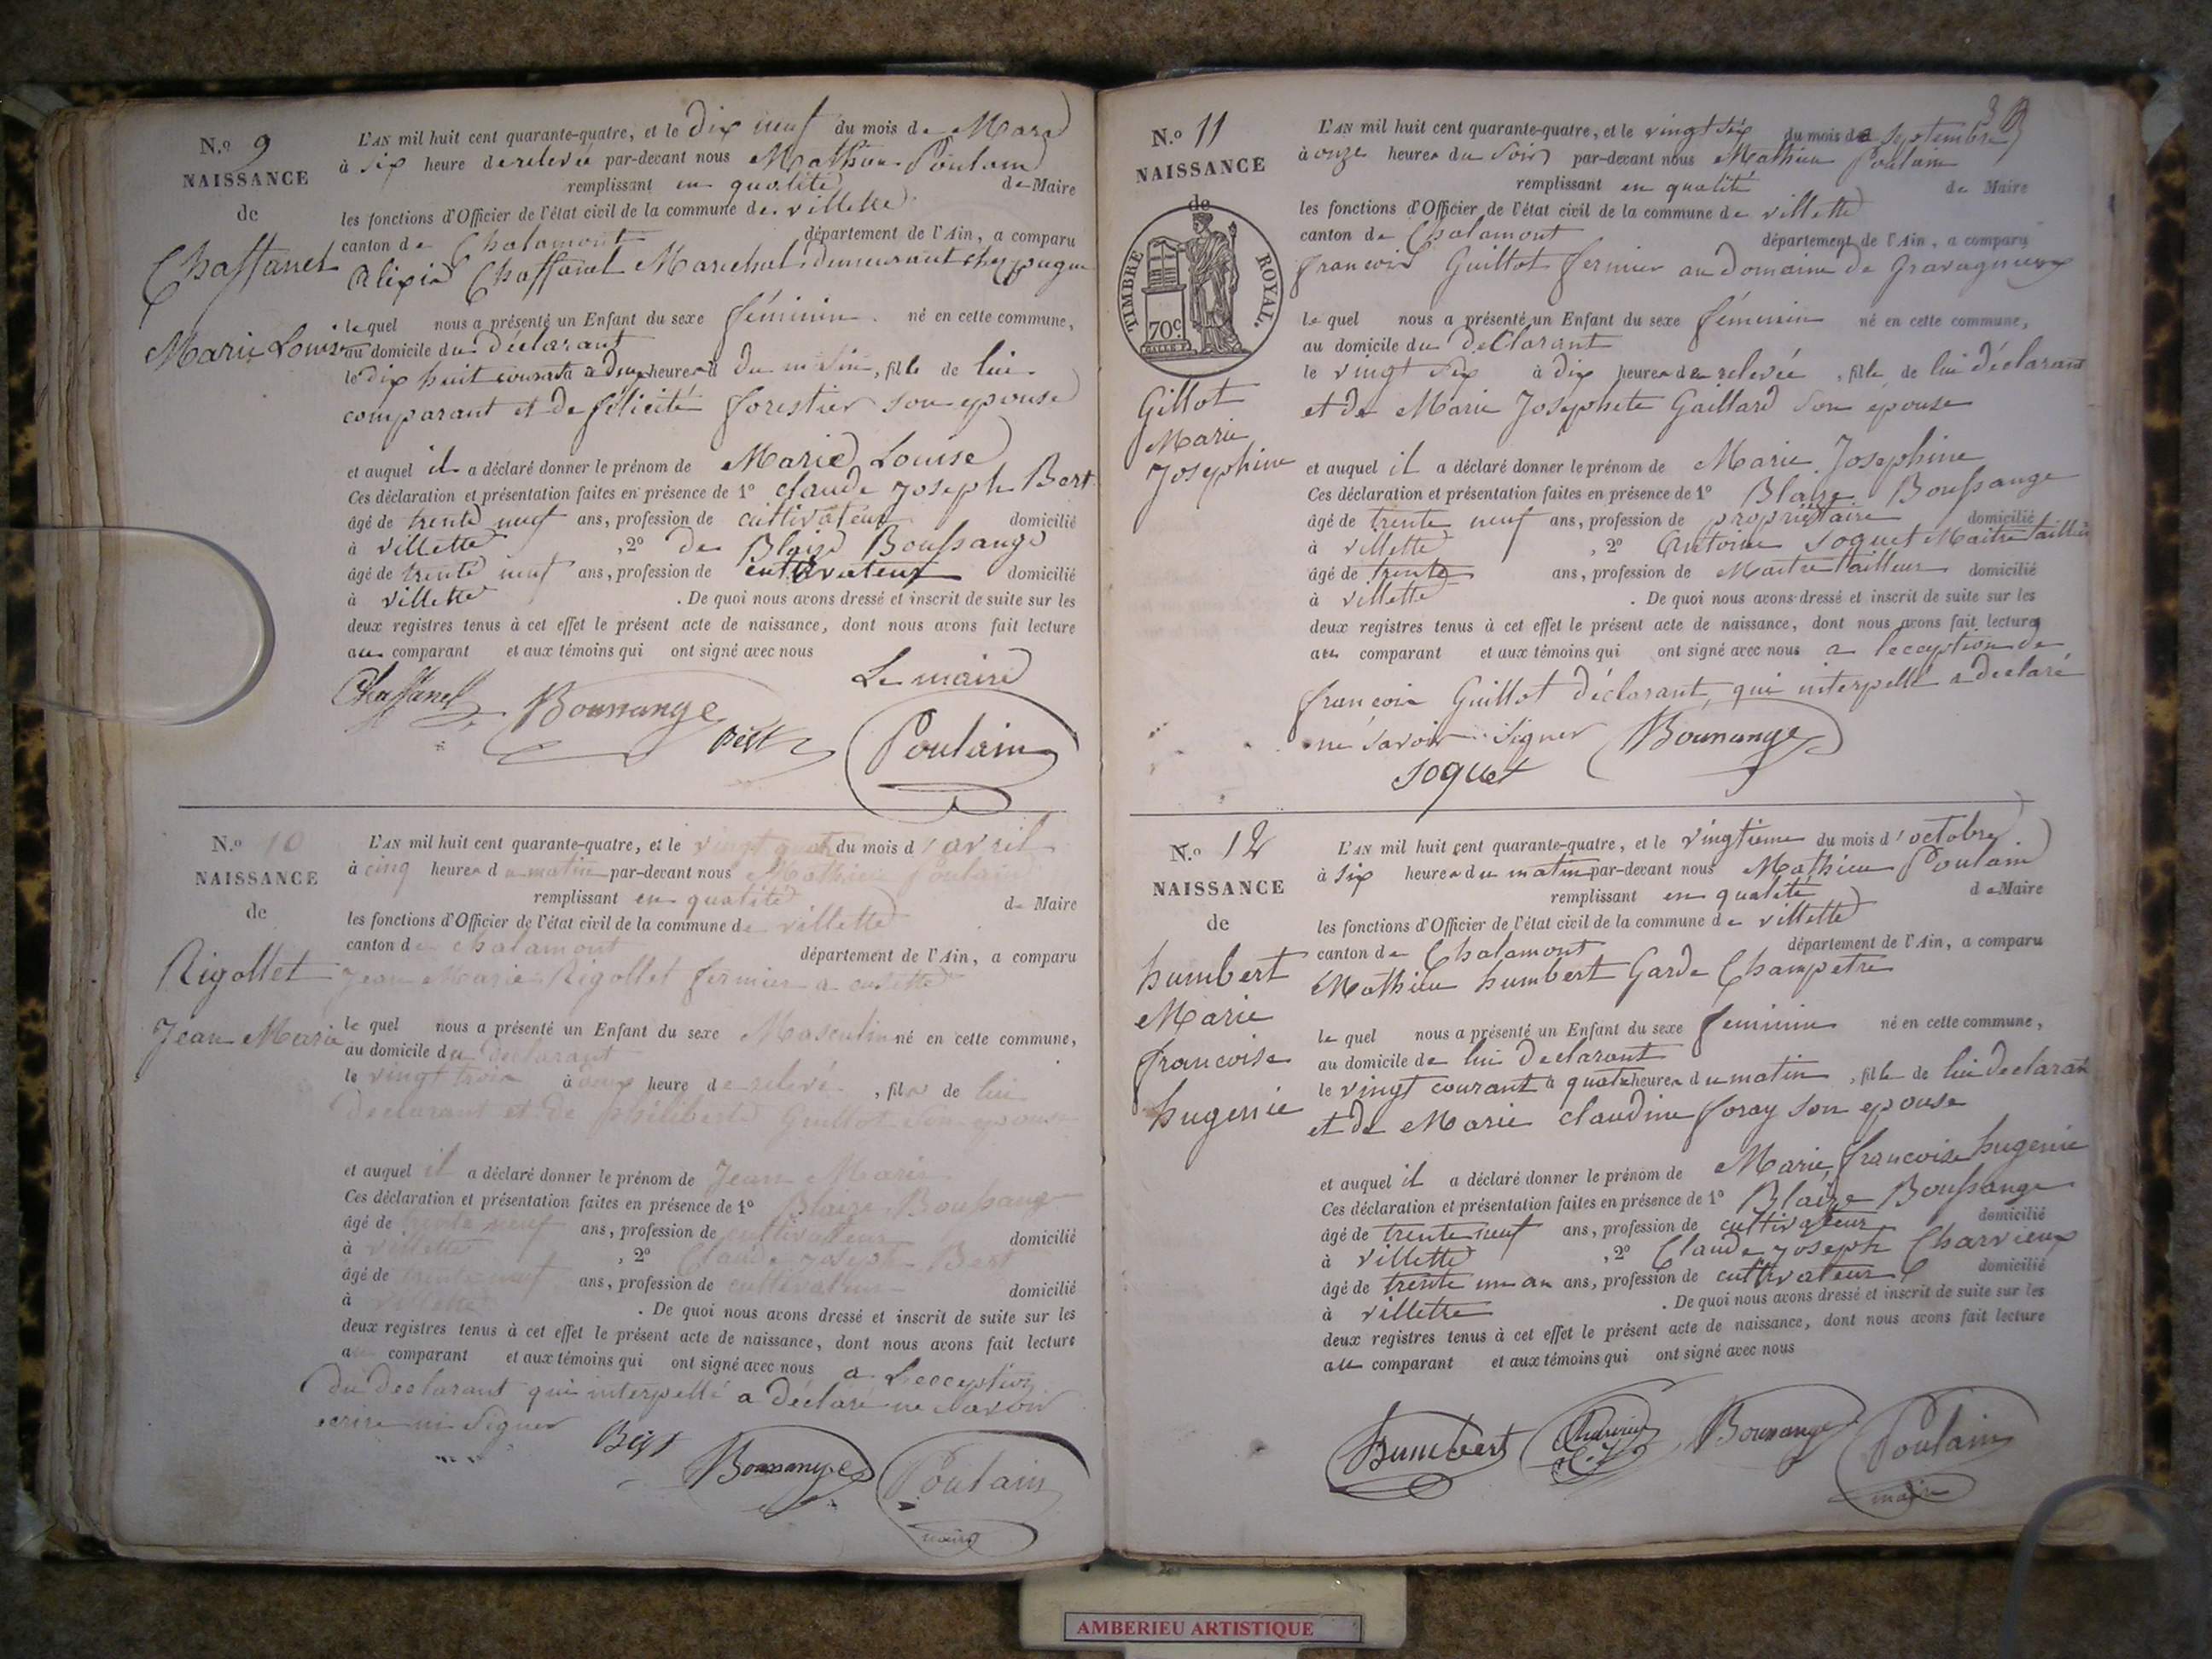 N.o 9
NAISSANCE
de
Chaffanel
Marie Louise
L'AN mil huit cent quarante-quatre, et le dix neuf du mois de Mars
à six heure de relevée par-devant nous Mathieu Poulain
remplissant en qualité de Maire
les fonctions d'Officier de l'état civil de la commune de villette
canton de Chalamont département de l'Ain, a comparu
Alexis Chaffanel Marechal demeurant chez
le quel nous a présenté un Enfant du sexe féminin né en cette commune,
au domicile du déclarant
le dix huit courant à deux heures du matin, fille de lui
comparant et de félicité forestier son epouse
et auquel il a déclaré donner le prénom de Marie Louise
Ces déclaration et présentation faites en présence de 1o claude joseph Bert
âgé de trente neuf ans, profession de cultivateur domicilié
à villette , 2o de Blaise Boussange
âgé de trente neuf ans, profession de cultivateur domicilié
à villette . De quoi nous avons dressé et inscrit de suite sur les
deux registres tenus à cet effet le présent acte de naissance, dont nous avons fait lecture
au comparant et aux témoins qui ont signé avec nous
Le maire
Chaffanel Boussange Bert Poulain
N.o 10
NAISSANCE
de
Rigollet
Jean Marie
L'AN mil huit cent quarante-quatre, et le vingt quatre du mois d'avril
à cinq heures du matin par-devant nous Mathieu Poulain
remplissant en qualité de Maire
les fonctions d'Officier de l'état civil de la commune de villette
canton de chalamont département de l'Ain, a comparu
Jean Marie Rigollet fermier a
le quel nous a présenté un Enfant du sexe Masculin né en cette commune,
au domicile du declarant
le vingt trois à deux heure de relevé , fils de lui
declarant et de philiberte Guillot son epouse
et auquel il a déclaré donner le prénom de Jean Marie
Ces déclaration et présentation faites en présence de 1o Blaize Boussange
âgé de trente neuf ans, profession de cultivateur domicilié
à villette , 2o Claude joseph Bert
âgé de trente neuf ans, profession de cultivateur domicilié
à villette . De quoi nous avons dressé et inscrit de suite sur les
deux registres tenus à cet effet le présent acte de naissance, dont nous avons fait lecture
au comparant et aux témoins qui ont signé avec nous a Lecception
du declarant qui interpellé a déclaré ne savoir
ecrire ni signer Bert
Boussange Poulain
maire
N.o 11
NAISSANCE
de
TIMBRE ROYAL.
70c.
Gillot
Marie
Josephine
L'AN mil huit cent quarante-quatre, et le vingt six du mois de septembre
à onze heures du soir par-devant nous Mathieu Poulain
remplissant en qualité de Maire
les fonctions d'Officier de l'état civil de la commune de villette
canton de Chalamont département de l'Ain, a comparu
francois Guillot fermier au domaine de gravagnieux
le quel nous a présenté un Enfant du sexe féminin né en cette commune,
au domicile du deClarant
le vingt six à dix heures de relevée , fille de lui déclarant
et de Marie Josephete Gaillard son epouse
et auquel il a déclaré donner le prénom de Marie Josephine
Ces déclaration et présentation faites en présence de 1o Blaize Boussange
âgé de trente neuf ans, profession de propriétaire domicilié
à villette , 2o Antoine Soquet Maitre tailleur
âgé de trente ans, profession de Maitre tailleur domicilié
à villette . De quoi nous avons dressé et inscrit de suite sur les
deux registres tenus à cet effet le présent acte de naissance, dont nous avons fait lecture
au comparant et aux témoins qui ont signé avec nous a lecception de
françois Guillot déclarant, qui interpellé a declaré
ne savoir signer Boussange
soquet
N.o 12
NAISSANCE
de
humbert
Marie
francoise
hugenie
L'AN mil huit cent quarante-quatre, et le vingtieme du mois d'octobre
à six heures du matin par-devant nous Mathieu Poulain
remplissant en qualité de Maire
les fonctions d'Officier de l'état civil de la commune de villette
canton de Chalamont département de l'Ain, a comparu
Mathieu humbert Garde Champetre
le quel nous a présenté un Enfant du sexe feminin né en cette commune,
au domicile de lui declarant
le vingt courant à quatre heures du matin , fille de lui declarant
et de Marie claudine foray son epouse
et auquel il a déclaré donner le prénom de Marie francoise hugenie
Ces déclaration et présentation faites en présence de 1o Blaize Boussange
âgé de trente neuf ans, profession de cultivateur domicilié
à villette , 2o Claude joseph Charvieux
âgé de trente un an ans, profession de cultivateur domicilié
à villette . De quoi nous avons dressé et inscrit de suite sur les
deux registres tenus à cet effet le présent acte de naissance, dont nous avons fait lecture
au comparant et aux témoins qui ont signé avec nous
humbert Boussange Poulain
maire
AMBERIEU ARTISTIQUE